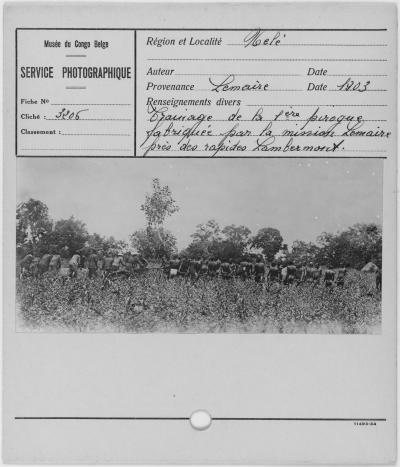 Musée du Congo Belge
SERVICE PHOTOGRAPHIQUE
Fiche No
Cliché : 3206
Classement :
Région et Localité Uelé
Auteur Date
Provenance Lemaire Date 1903
Renseignements divers
Trainage de la 1ère pirogue
fabriquée par la mission Lemaire
près des rapides Lambermont.